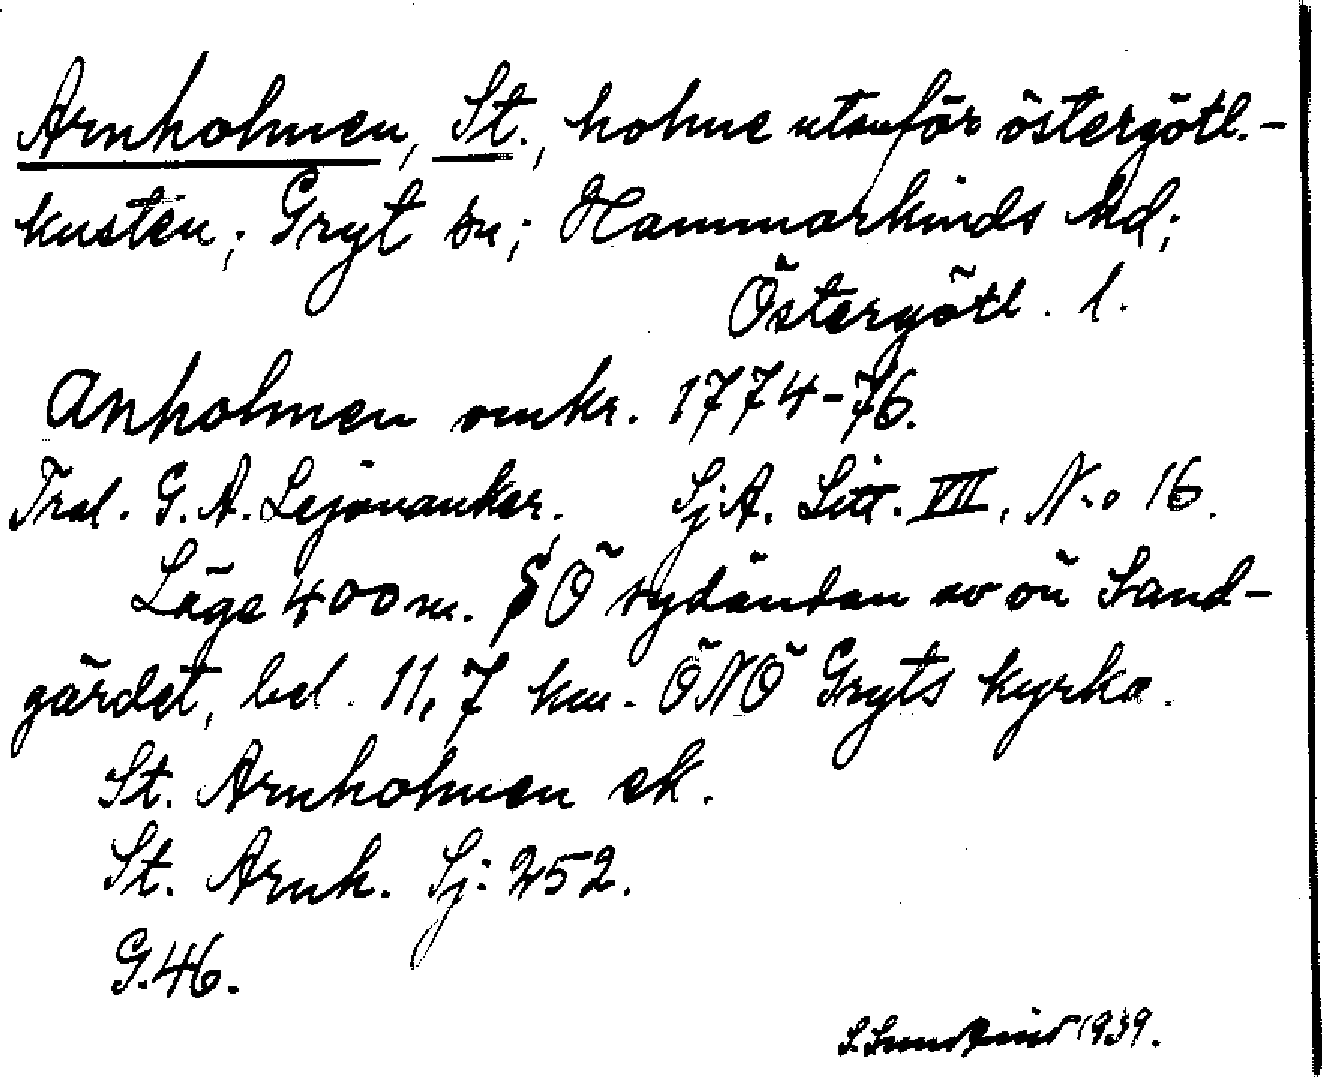 Arnholmen, St., holme utanför östergötl.-
kusten; Gryt sn; Hammarkinds hd;
Östergötl. l.
Anholmen omkr. 1774-76.
Tral. G. A. Lejonanker. Sj.A. Litt. VII, N:o 16.
Läge 400 m. SÖ sydändan av ön Sand-
gärdet, bel. 11,7 km. ÖNÖ Gryts kyrka.
St. Arnholmen ek.
St. Arnh. Sj: 252.
G.46.
S. 1939.